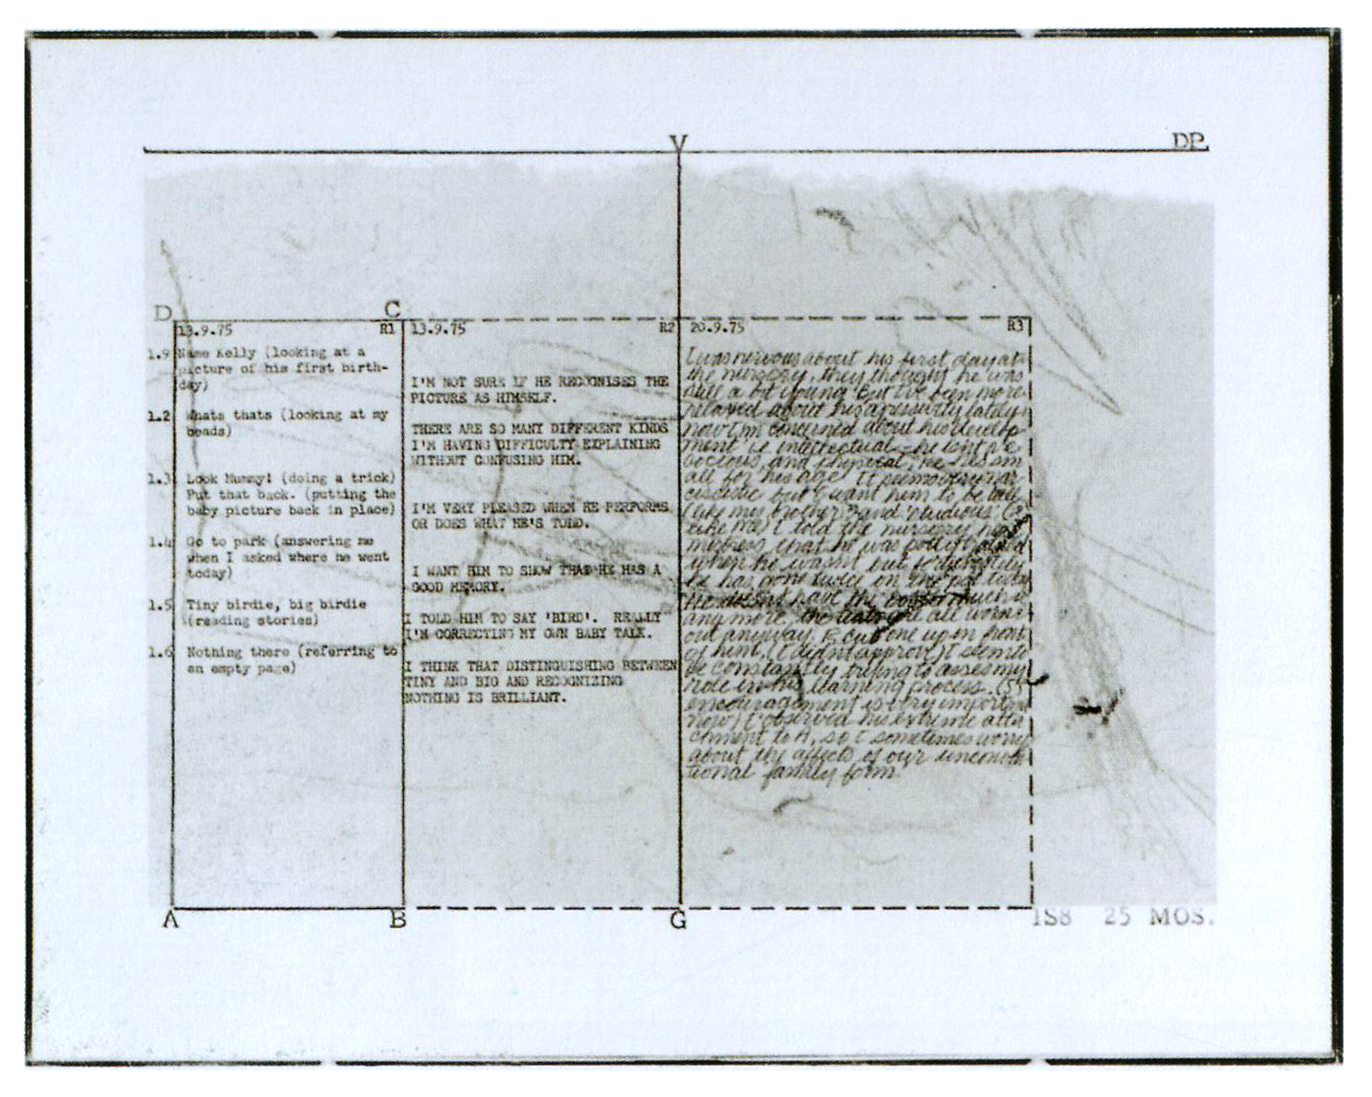 V
DP.
D
C
13.9.75
R1
1.9 Name Kelly (looking at a
picture of his first birth-
day)
1.2 Whats thats (looking at my
beads)
1.3 Look Mummy! (doing a trick)
Put that back. (putting the
baby picture back in place)
1.4 Go to park (answering me
when I asked where he went
today)
1.5 Tiny birdie, big birdie
(reading stories)
1.6 Nothing there (referring to
an empty page)
13.9.75
R2
I'M NOT SURE IF HE RECOGNISES THE
PICTURE AS HIMSELF.
THERE ARE SO MANY DIFFERENT KINDS
I'M HAVING DIFFICULTY EXPLAINING
WITHOUT CONFUSING HIM.
I'M VERY PLEASED WHEN HE PERFORMS
OR DOES WHAT HE'S TOLD.
I WANT HIM TO SHOW THAT HE HAS A
GOOD MEMORY.
I TOLD HIM TO SAY 'BIRD'. REALLY
I'M CORRECTING MY OWN BABY TALK.
I THINK THAT DISTINGUISHING BETWEEN
TINY AND BIG AND RECOGNIZING
NOTHING IS BRILLIANT.
20.9.75
R3
I was nervous about his first day at
the nursery, they thought he was
still a bit young but I've been more
relaxed about his apssivity lately
now I'm concerned about his develop-
ment ie intellectual - he isn't pre
cocious, and physical, he is sm
all for his age. It seems very nar
cissistic but I want him to be tall
(like my brother) and 'studious' (
like me) I told the nursery
mistress that he was potty trained
when he wasn't but fortunately
he has gone twice on the pot today
He doesn't have the bottle much
anymore, the teats are all worn
out anyway. R. cut one up in front
of him. (I didn't approve) I seem to
be constantly trying to asses my
role in his learning process. (5
encouragement is very important
now) I observed his extreme atta
chment to A, so I sometimes worry
about the affects of our unconven
tional family form.
A
B
G
1S8 25 MOS.